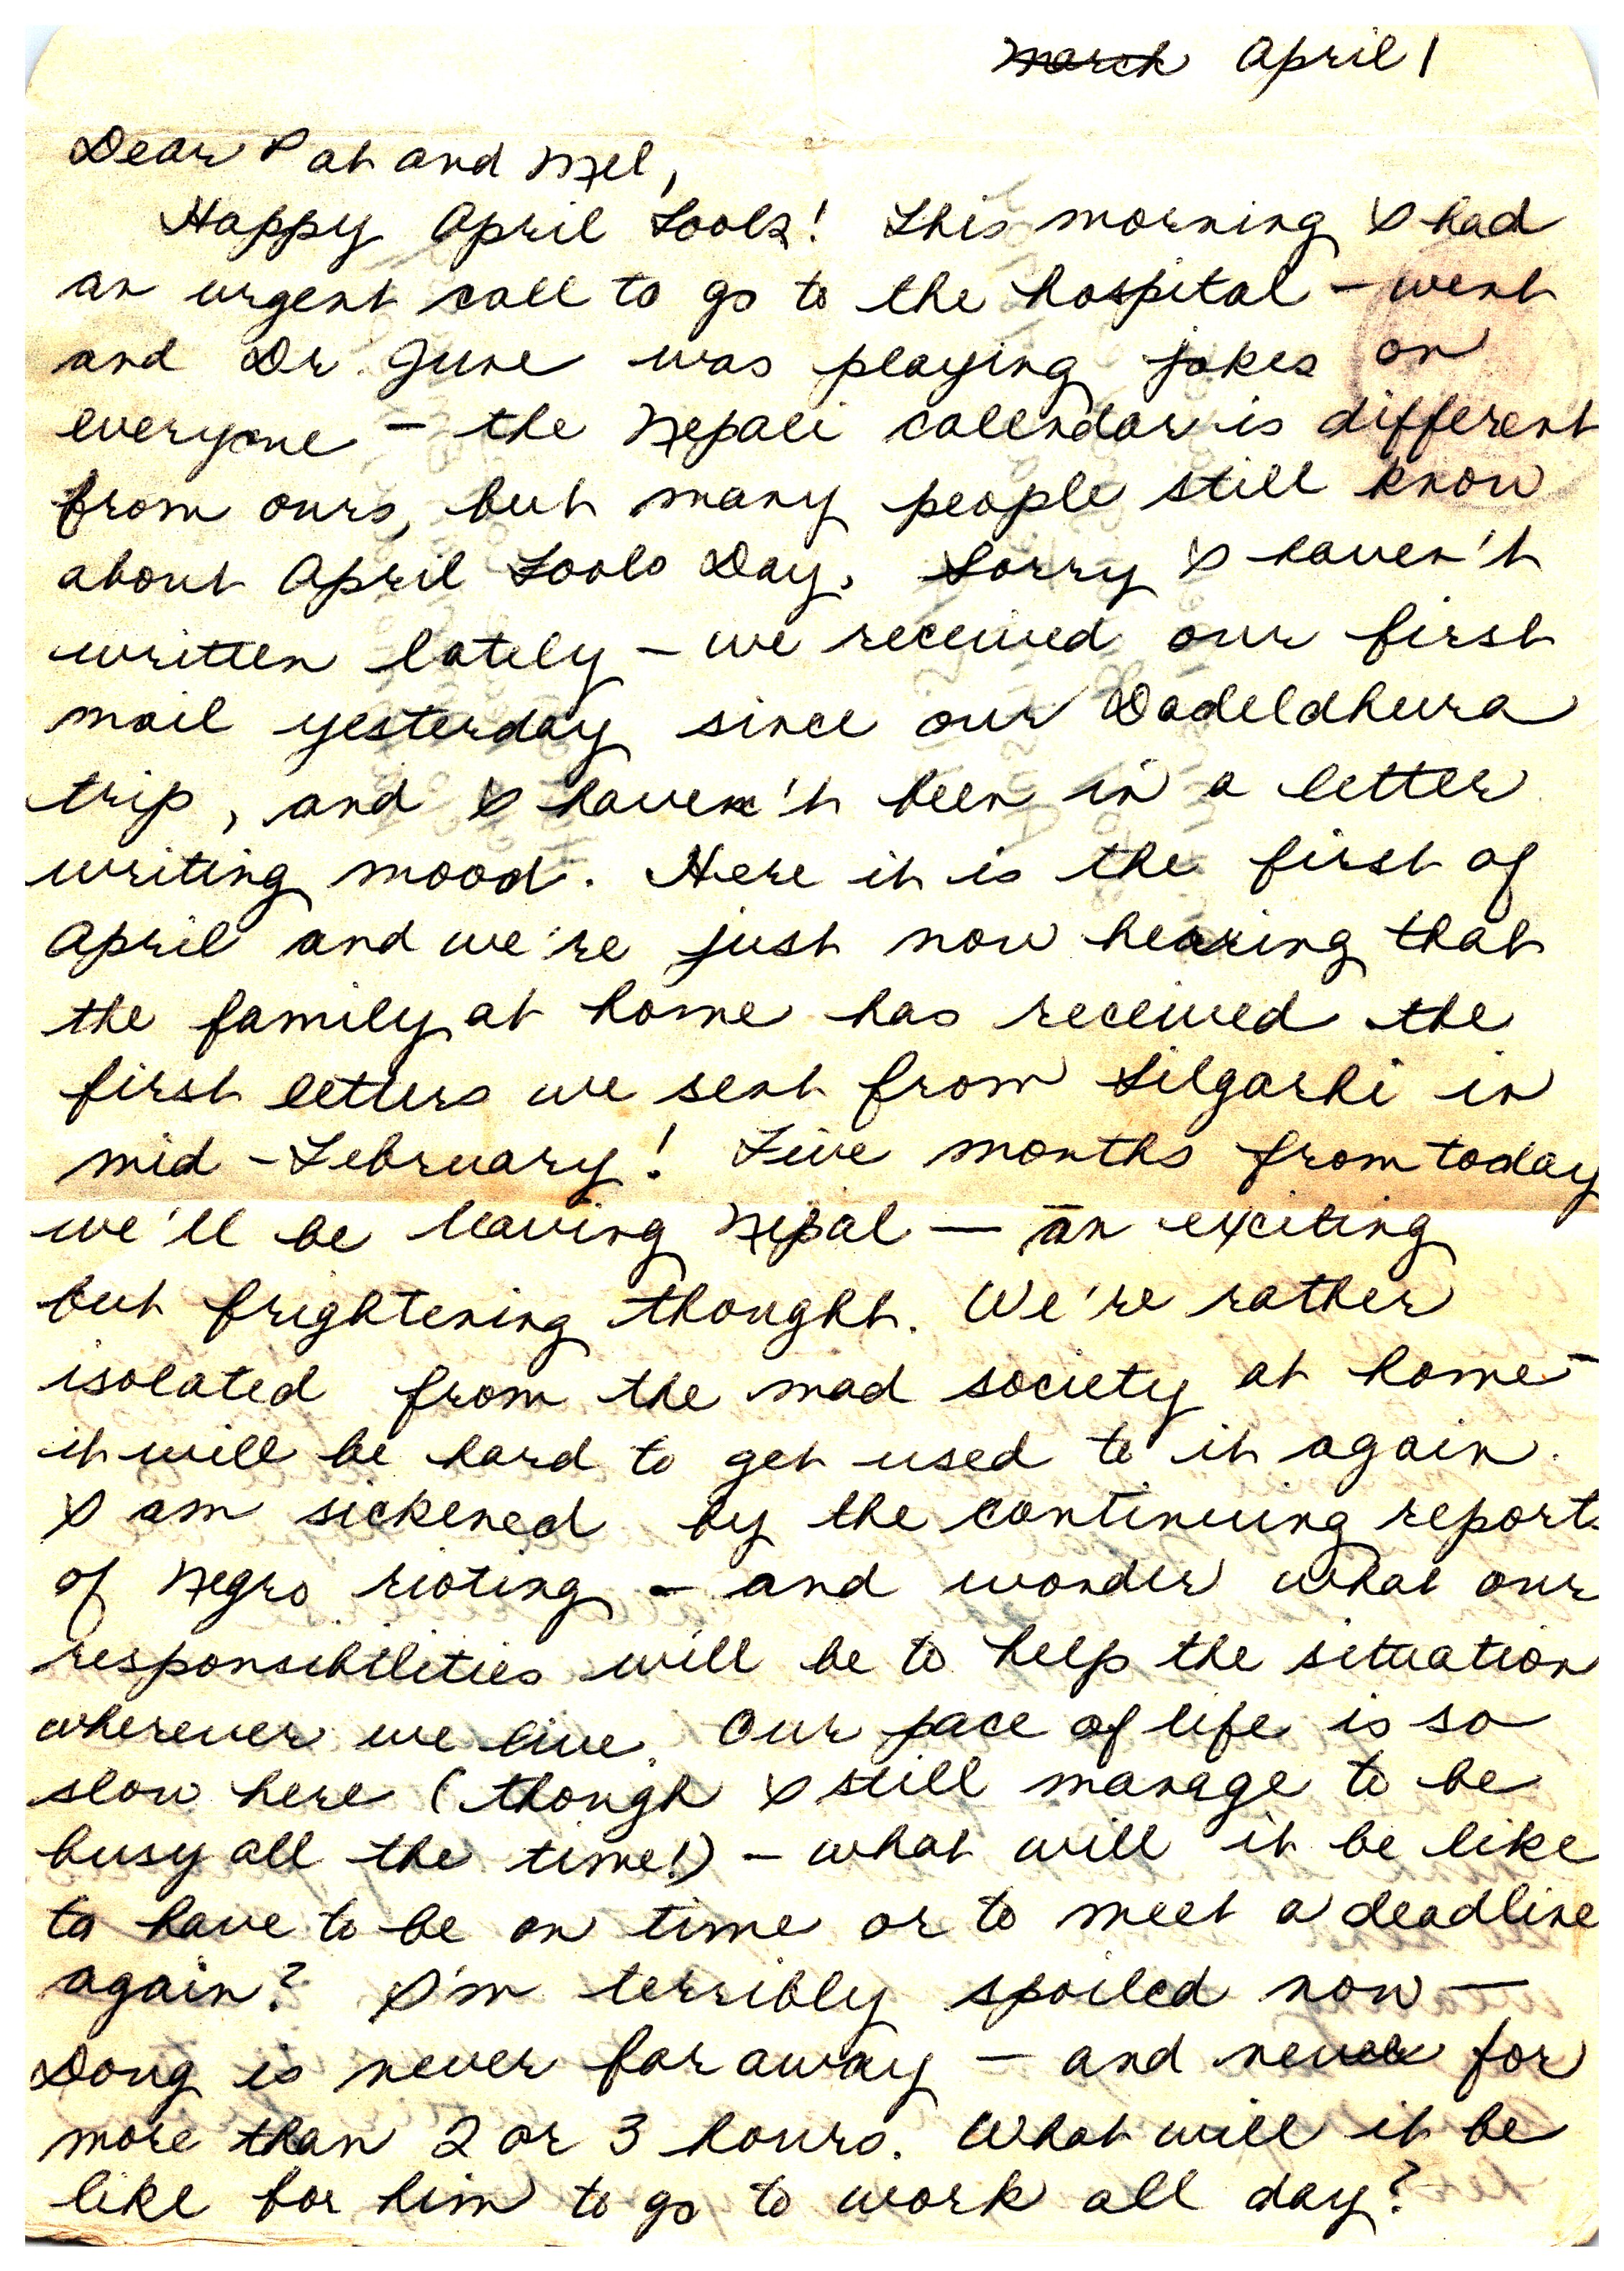 ~~March~~ April 1
Dear Pat and Mel,
Happy April Fools! This morning I had
an urgent call to go to the hospital – went
and Dr. June was playing jokes on
everyone – the Nepali calendar is different
from ours, but many people still know
about April Fools Day. Sorry I haven't
written lately – we received our first
mail yesterday since our Dadeldhura
trip, and I haven't been in a letter
writing mood. Here it is the first of
April and we're just now hearing that
the family at home has received the
first letters we sent from Silgarhi in
mid-February! Five months from today
we'll be leaving Nepal — an exciting
but frightening thought. We're rather
isolated from the mad society at home –
it will be hard to get used to it again.
I am sickened by the continuing reports
of Negro rioting – and wonder what our
responsibilities will be to help the situation
wherever we live. Our pace of life is so
slow here (though I still manage to be
busy all the time!) – what will it be like
to have to be on time or to meet a deadline
again? I'm terribly spoiled now —
Doug is never far away – and never for
more than 2 or 3 hours. What will it be
like for him to go to work all day?